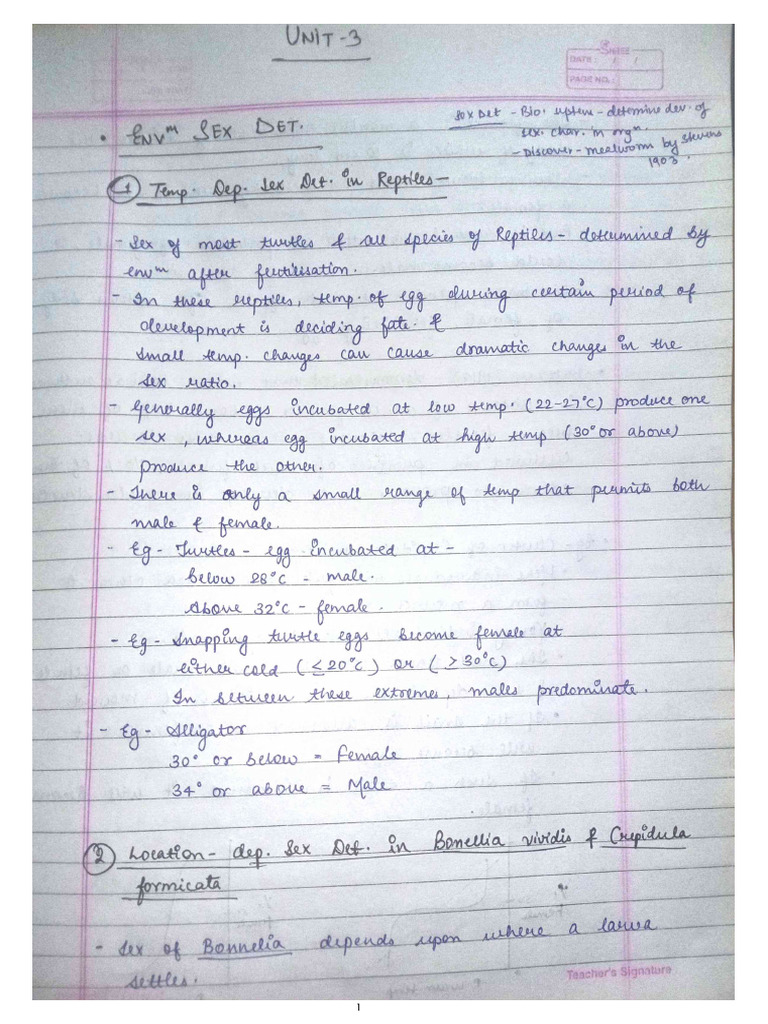 UNIT-3
SHREE
DATE: / /
PAGE NO.:
Sex Det - Bio. system - determine dev. of
sex. char. in orgⁿ.
- Discover - mealworm by Stevens
1903.
• ENVᵐ SEX DET.
① Temp. Dep. Sex Det. in Reptiles-
- Sex of most turtles & all species of Reptiles - determined by
envᵐ after fertilisation.
- In these reptiles, temp. of egg during certain period of
development is deciding fate. &
small temp. changes can cause dramatic changes in the
sex ratio.
- Generally eggs incubated at low temp. (22-27°C) produce one
sex, whereas egg incubated at high temp (30° or above)
produce the other.
- There is only a small range of temp that permits both
male & female.
- Eg - Turtles - egg incubated at -
below 28°C - male.
above 32°C - female.
- Eg - Snapping turtle eggs become female at
either cold (≤20°C) or (≥30°C)
In between these extremes, males predominate.
- Eg - Alligator
30° or below = Female
34° or above = Male
② Location- dep. Sex Det. in Bonellia vividis & Crepidula
formicata
- Sex of Bonnelia depends upon where a larva
settles.
Teacher's Signature
1